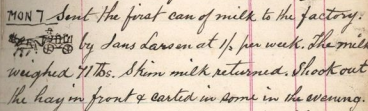 MON 7 Sent the first can of milk to the factory.
by Lans Larsen at 1/3 per week. The milk
weighed 71 lbs. Skim milk returned. Shook out
the hay in front & carted in some in the evening.